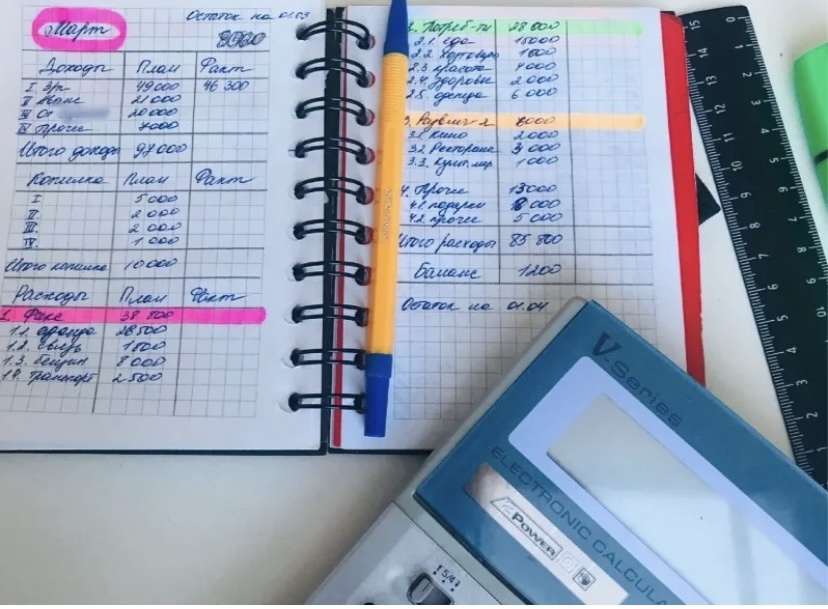 Март
Остаток на 01.03
Доходы План Факт
I з/п 49000 46 300
II Аванс 21000
III От 20000
IV Прочее 7000
Итого доходы 97000
Копилка План Факт
I. 5000
II. 2000
III. 2000
IV. 1000
Итого копилка 10000
Расходы План Факт
1. Фикс 38 800
1.1. аренда 26500
1.2. связь 1800
1.3. бензин 8000
1.4. транспорт 2500
2. Потреб-ти 28 800
2.1. еда 15000
2.2. 1800
2.3. красота 4000
2.4. здоровье 2000
2.5. одежда 6000
3. Развлеч-я 6000
3.1. кино 2000
3.2. Рестораны 3000
3.3. Культ. мер. 1000
4. Прочие 13000
4.1. подарки 8000
4.2. прочее 5000
Итого расходы 85 800
Баланс 1200
Остаток на 01.04
V-Series
ELECTRONIC CALCULA
POWER
5/4
15
14
13
12
11
10
0
1
2
3
4
5
6
7
8
9
10